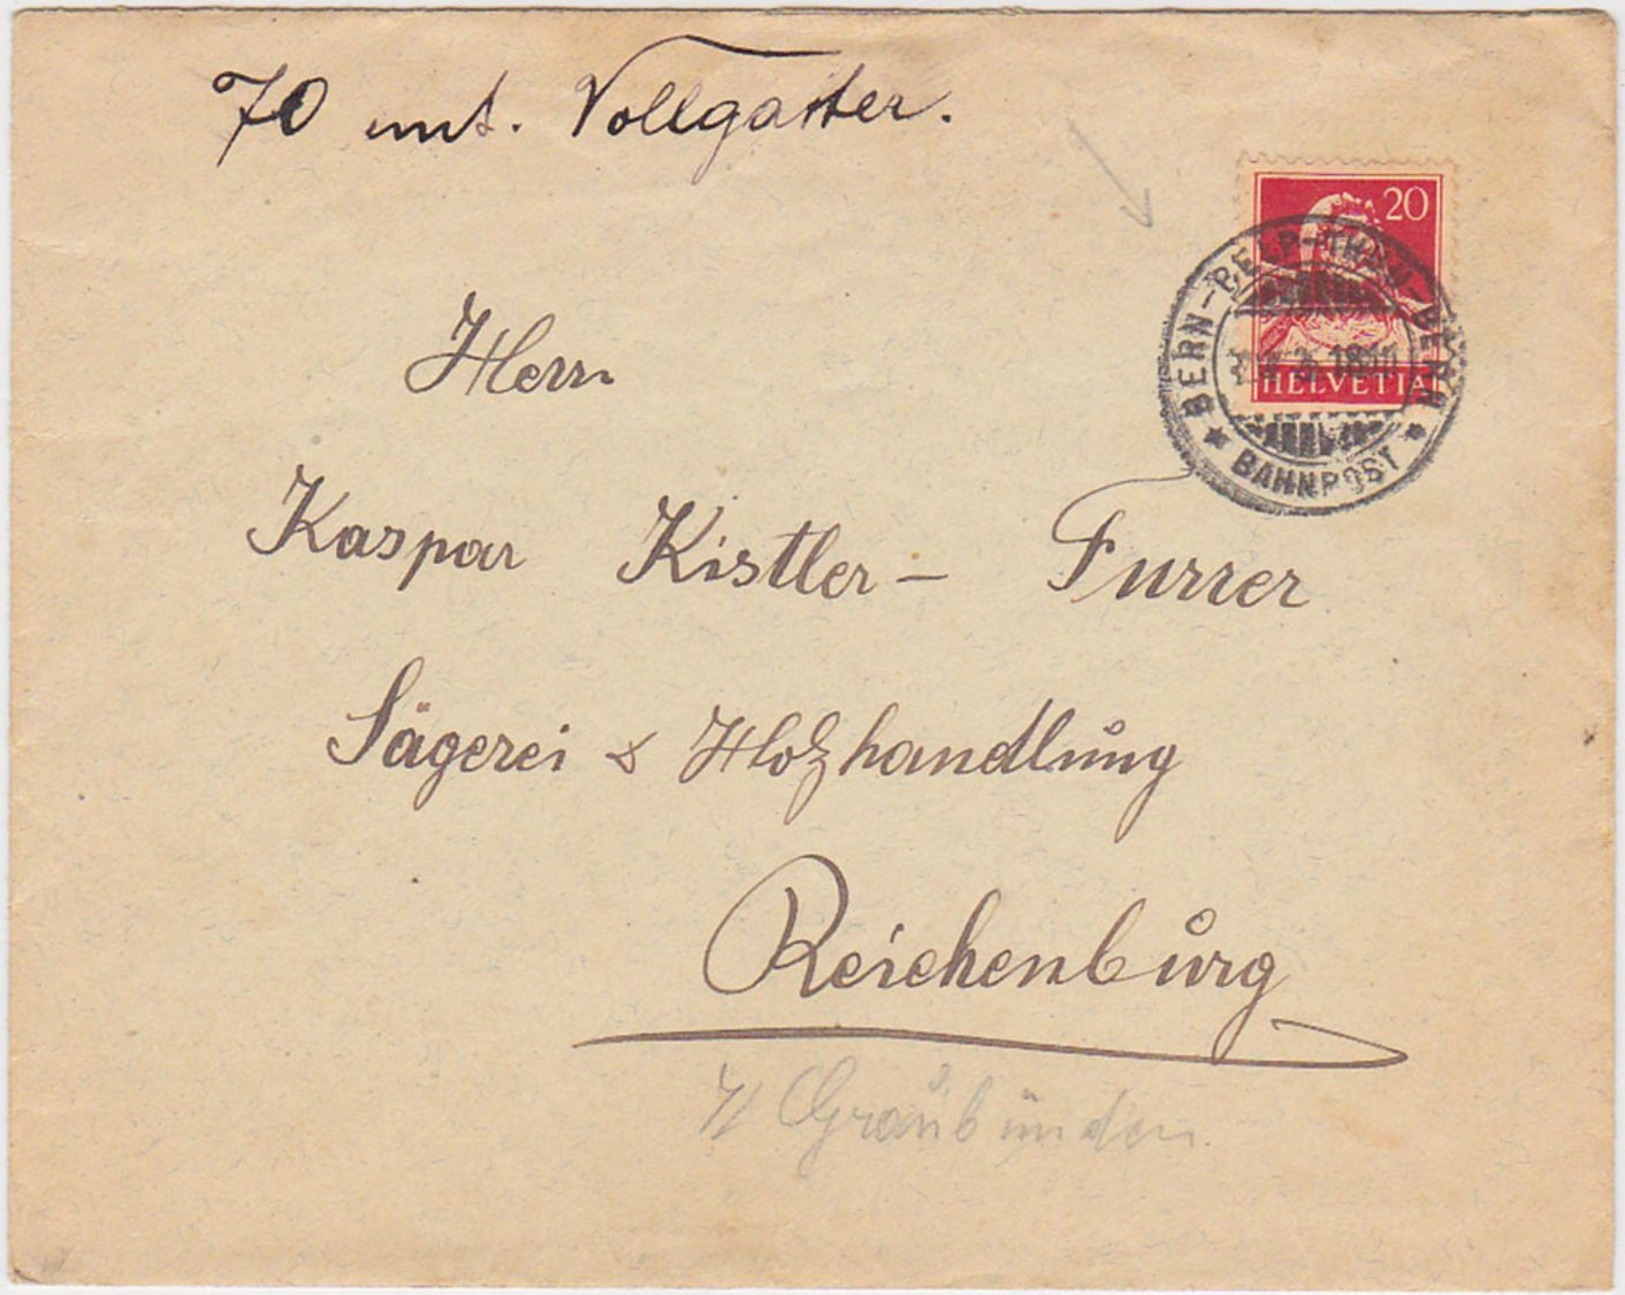 70 cmt. Vollgatter.
20
HELVETIA
BERN-BELP-THUN-BERN
BAHNPOST
Herrn
Kaspar Kistler - Furrer
Sägerei & Holzhandlung
Reichenburg
Graubünden